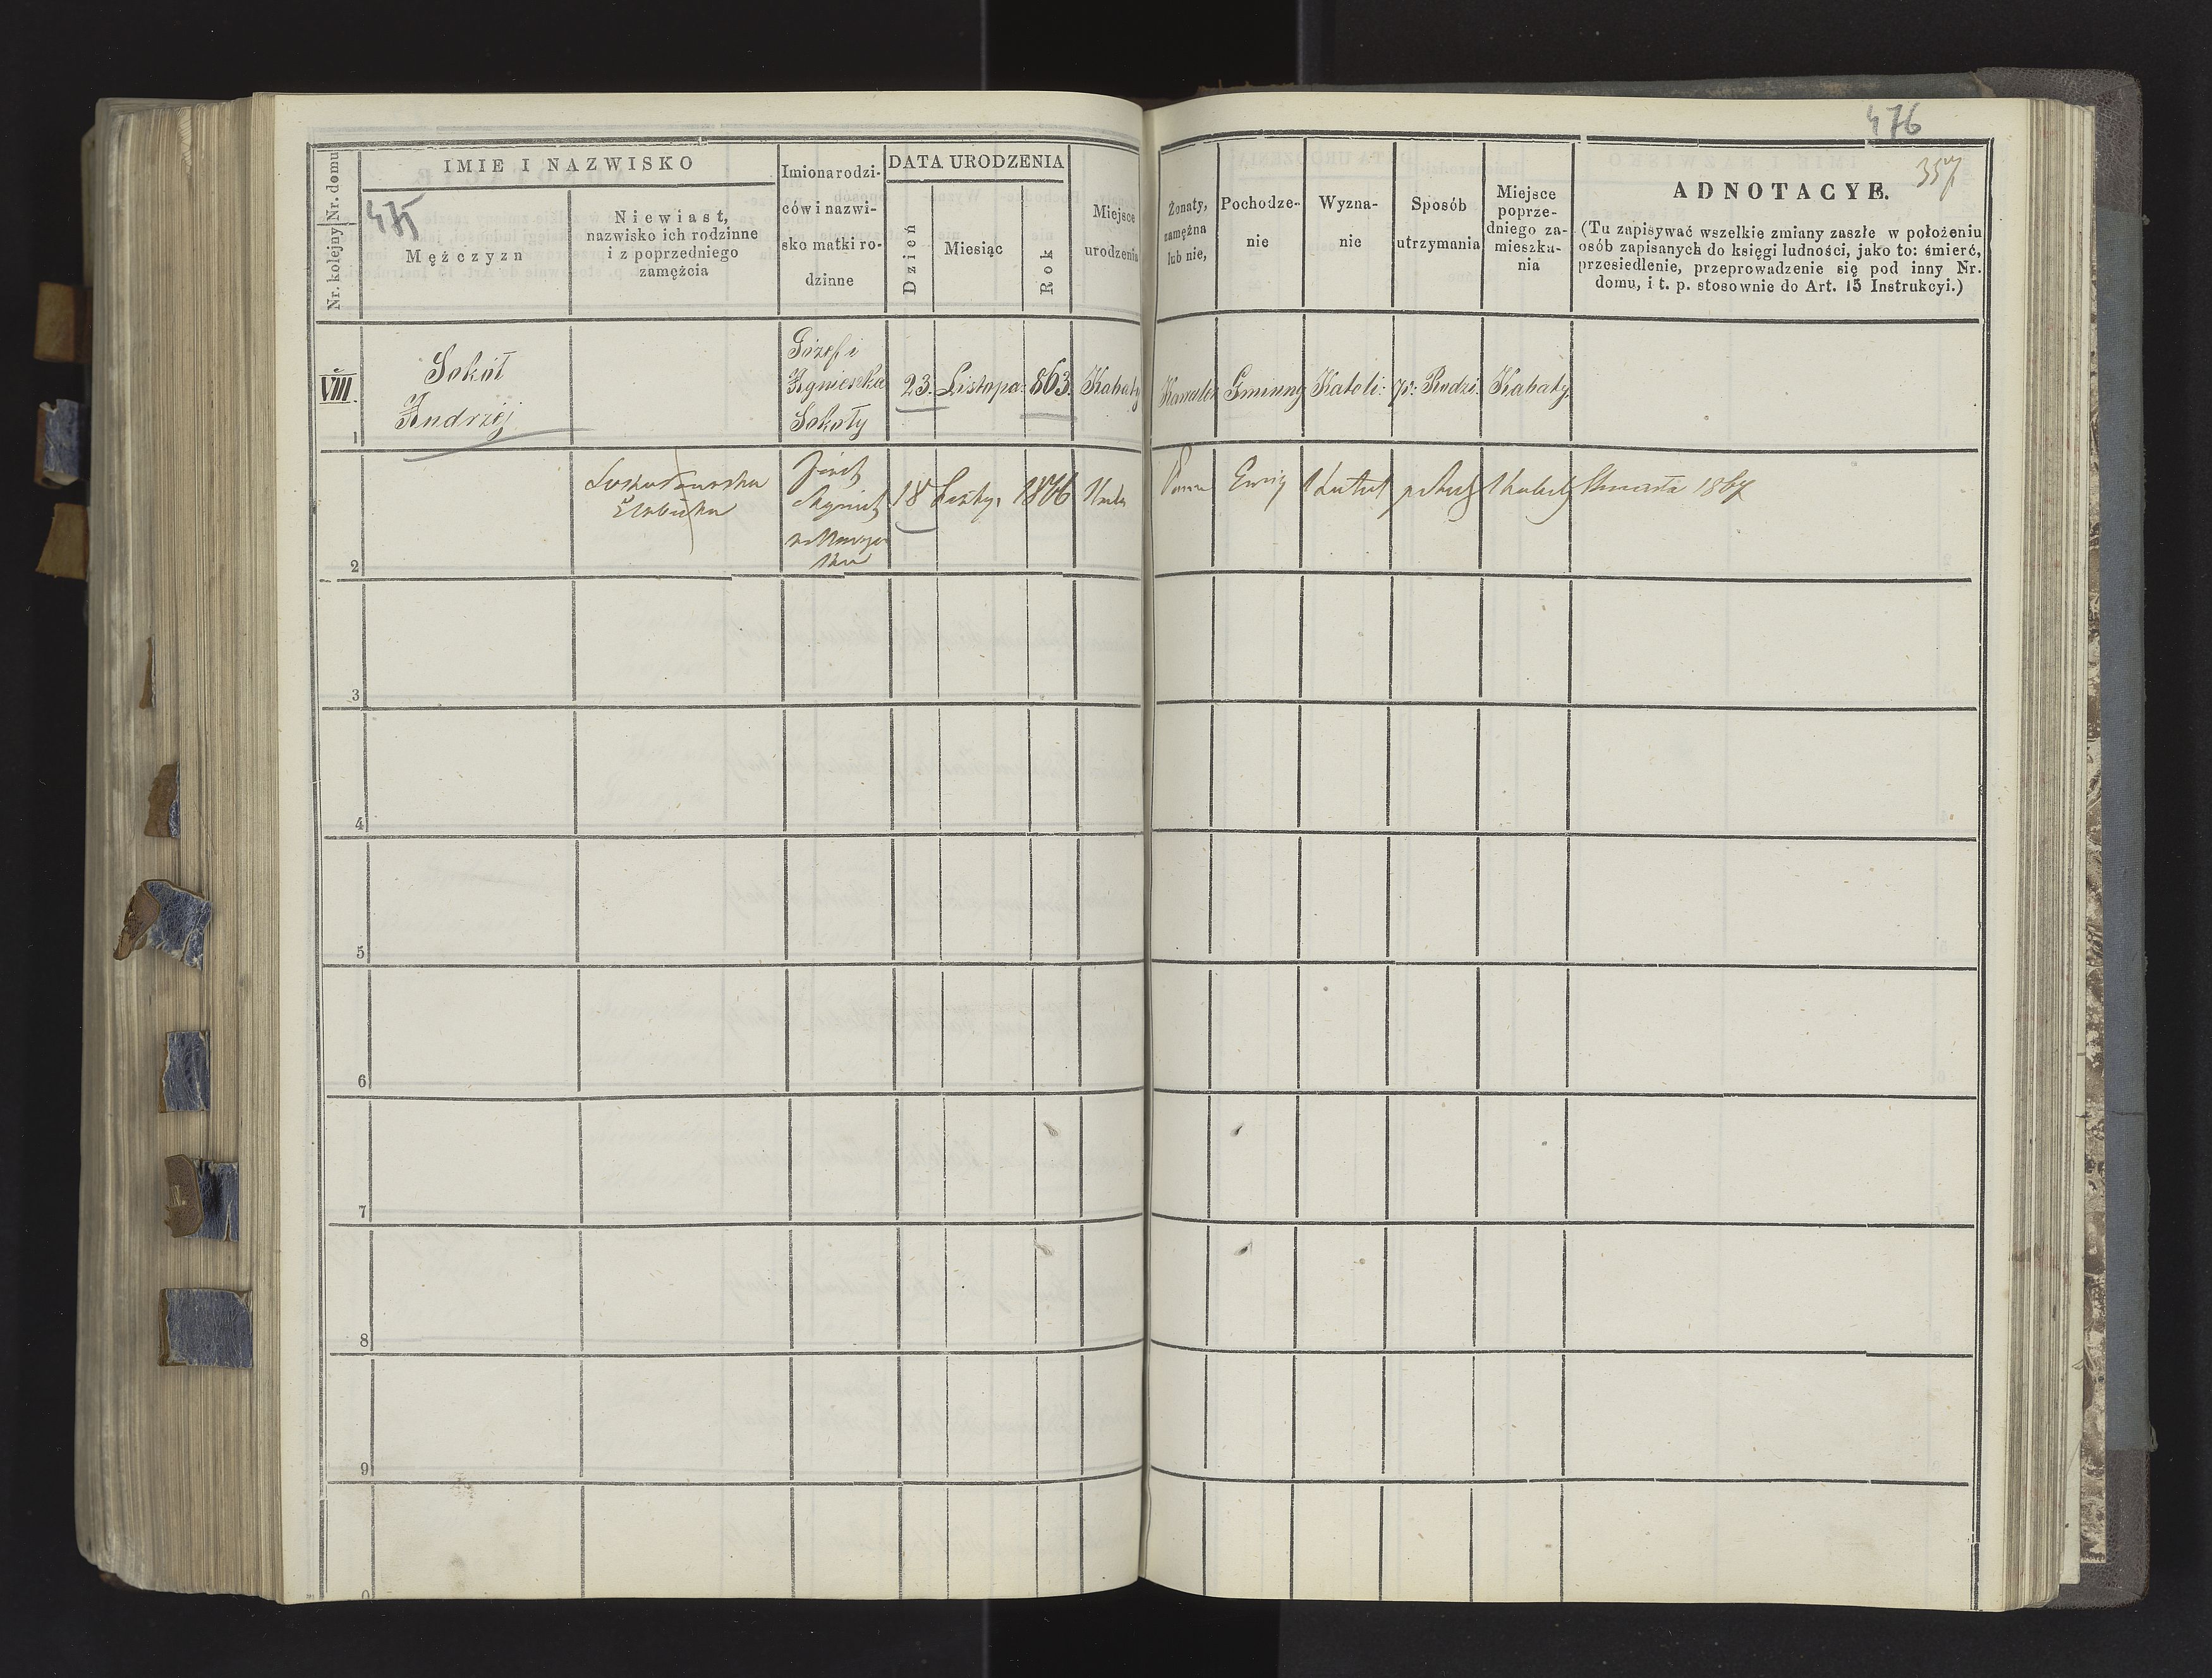 476
357
475
Nr. kolejny Nr. domu
IMIE I NAZWISKO
Mężczyzn
Niewiast,
nazwisko ich rodzinne
i z poprzedniego
zamężcia
Imiona rodzi-
ców i nazwi-
sko matki ro-
dzinne
DATA URODZENIA
Dzień
Miesiąc
Rok
Miejsce
urodzenia
Żonaty,
zamężna
lub nie,
Pochodze-
nie
Wyzna-
nie
Sposób
utrzymania
Miejsce
poprze-
dniego za-
mieszka-
nia
ADNOTACYE.
(Tu zapisywać wszelkie zmiany zaszłe w położeniu
osób zapisanych do księgi ludności, jako to: śmierć,
przesiedlenie, przeprowadzenie się pod inny Nr.
domu, i t. p. stosownie do Art. 15 Instrukcyi.)
VIII.
1
Sokół
Andrzéj
Józef i
Agnieszka
Sokoły
23. Listopa: 863. Kabaty
Kawaler Gminny Katoli: Rodzi: Kabaty
2
Józef
18 18
Panna Kabaty Umarła 1867
3
4
5
6
7
8
9